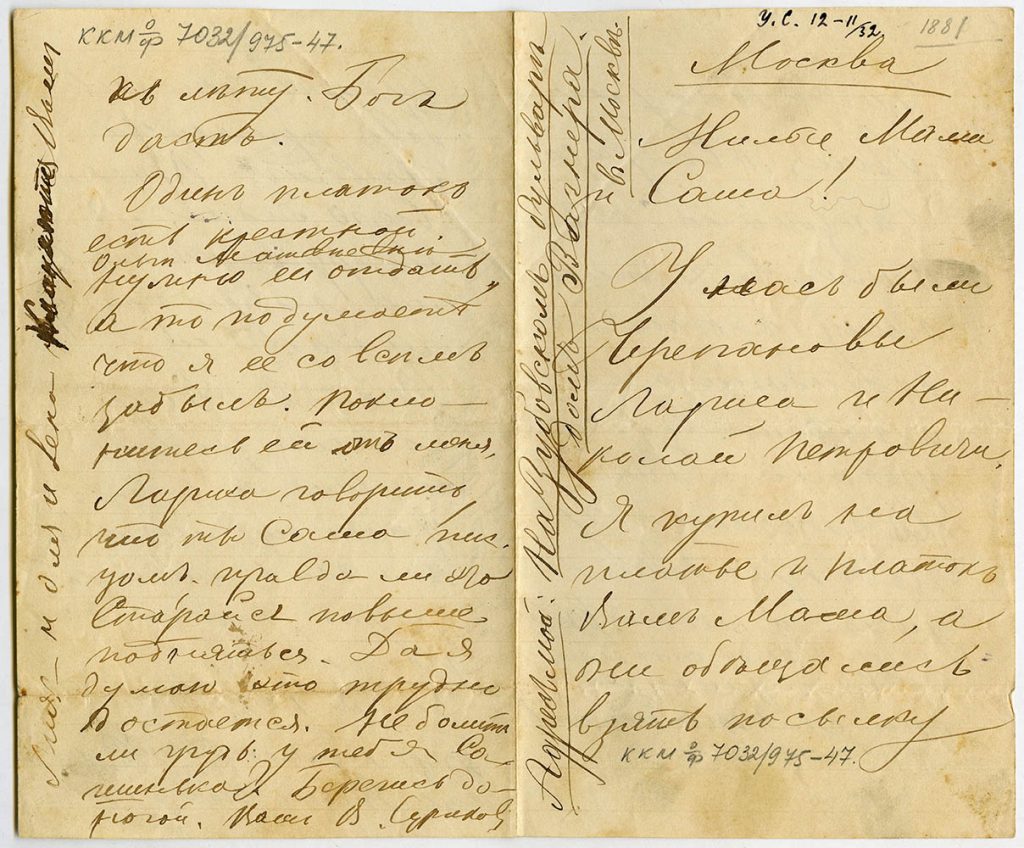 У.С. 12-11/32
1881
Москва
Милые Мама
и Саша!
У насъ были
Черепановы
Лариса и Ни-
колай Петровичи.
Я купилъ на
платье и платокъ
Вамъ Мама, а
они обѣщались
взять посылку
ККМ о/ф 7032/975-47.
Адресъ мой: На Зубовскомъ бульварѣ
домъ Вагнера.
в Москвѣ.
ККМ о/ф 7032/975-47.
къ лѣту. Богъ
дастъ.
Одинъ платокъ
есть крестной
Ольгѣ Матвѣевнѣ
нужно ей отдать,
а то подумаетъ
что я ее совсѣмъ
забылъ. Покло-
нитесь ей отъ меня,
Лариса говоритъ,
что ты Саша пис-
цомъ. правда ли это
Старайся повыше
подняться. Да я
думаю это трудно
достается. Не болитъ
ли грудь у тебя Са-
шинька? Берегись до-
рогой. Вашъ В. Суриковъ
Лиля - и Оля и Лена кланяются Вамъ